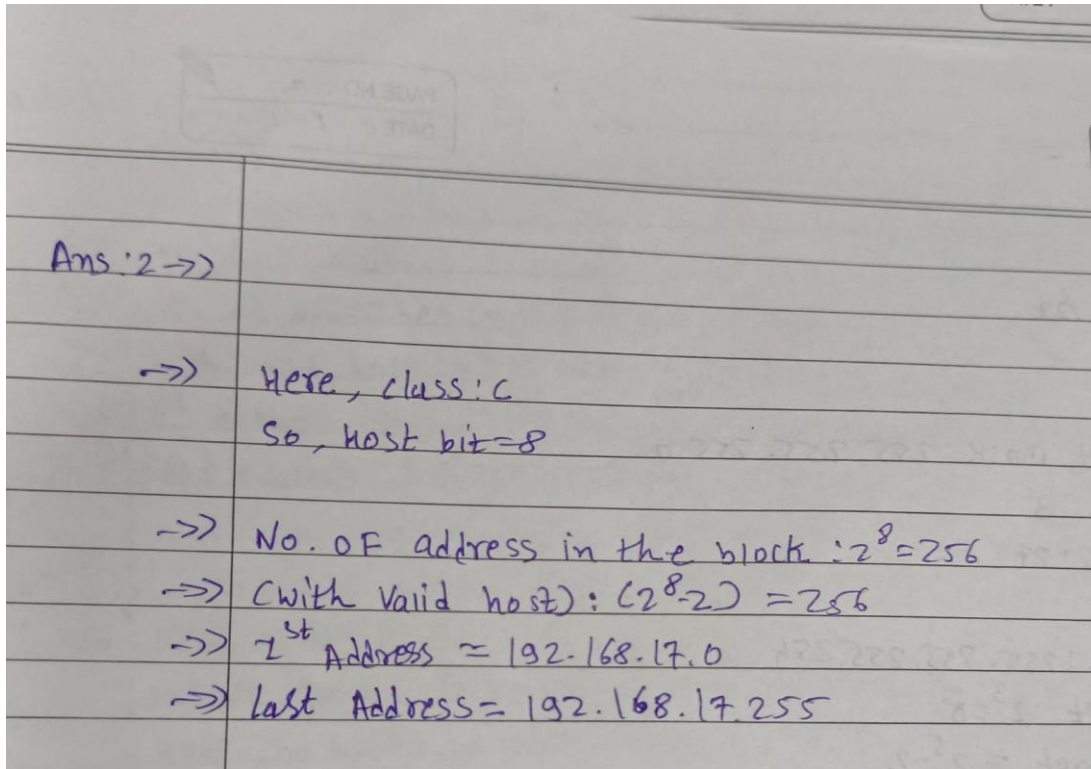 Ans:2 →>
→> Here, class: C
So, host bit=8
→> No. OF address in the block : 2⁸=256
→> (with valid host): (2⁸-2) = 256
→> 1st Address = 192.168.17.0
→> last Address = 192.168.17.255